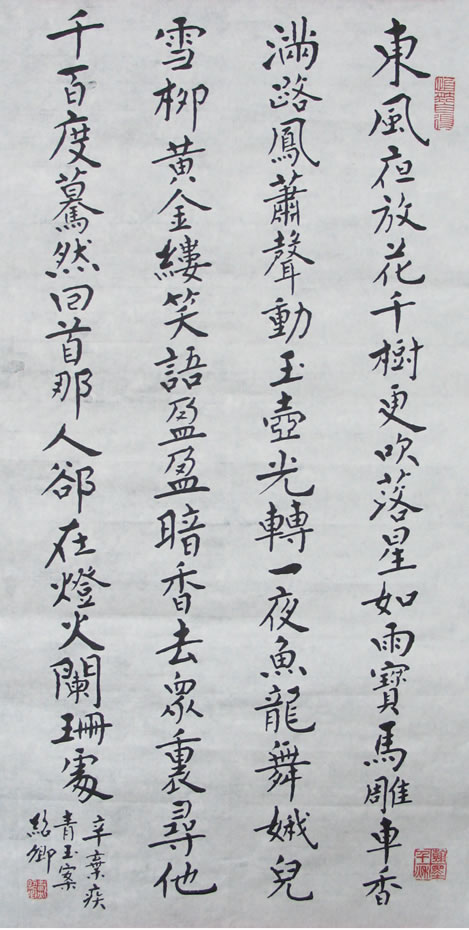 東風夜放花千樹更吹落星如雨寶馬雕車香
滿路鳳蕭聲動玉壺光轉一夜魚龍舞娥兒
雪柳黃金縷笑語盈盈暗香去眾裏尋他
千百度驀然回首那人卻在燈火闌珊處
辛棄疾
青玉案
紹卿